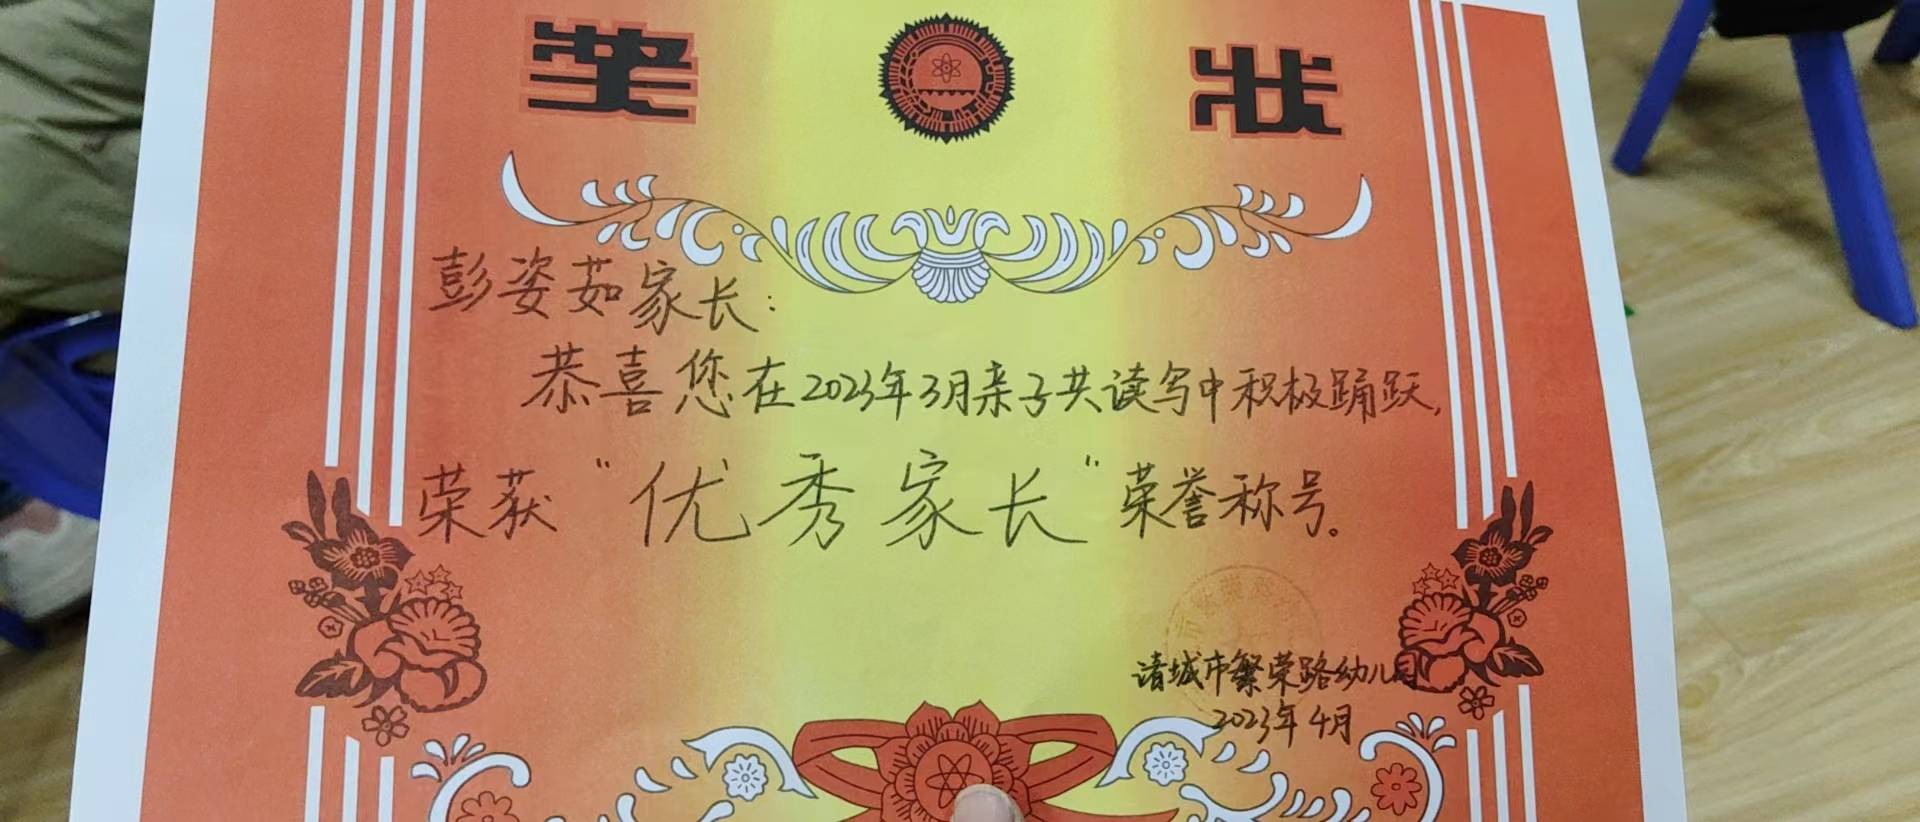 奖 状
彭姿茹家长:
恭喜您在2023年3月亲子共读写中积极踊跃,
荣获“优秀家长”荣誉称号。
诸城市繁荣路幼儿园
2023年4月